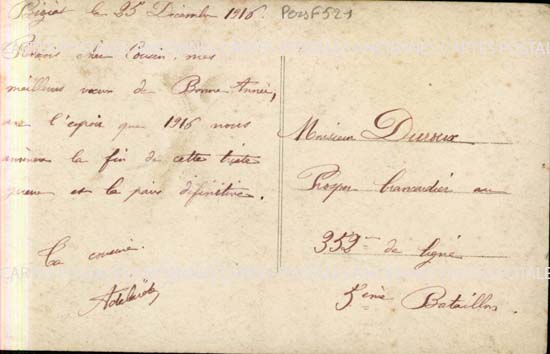 le 25 Décembre 1916. PersF521
Reçois cher Cousin, mes
meilleurs vœux de Bonne Année,
avec l'espoir que 1916 nous
amènera la fin de cette triste
guerre et la paix définitive.
Ta cousine.
Adelaïde
Monsieur Duroux
brancardier au
352me de ligne
5ème Bataillon